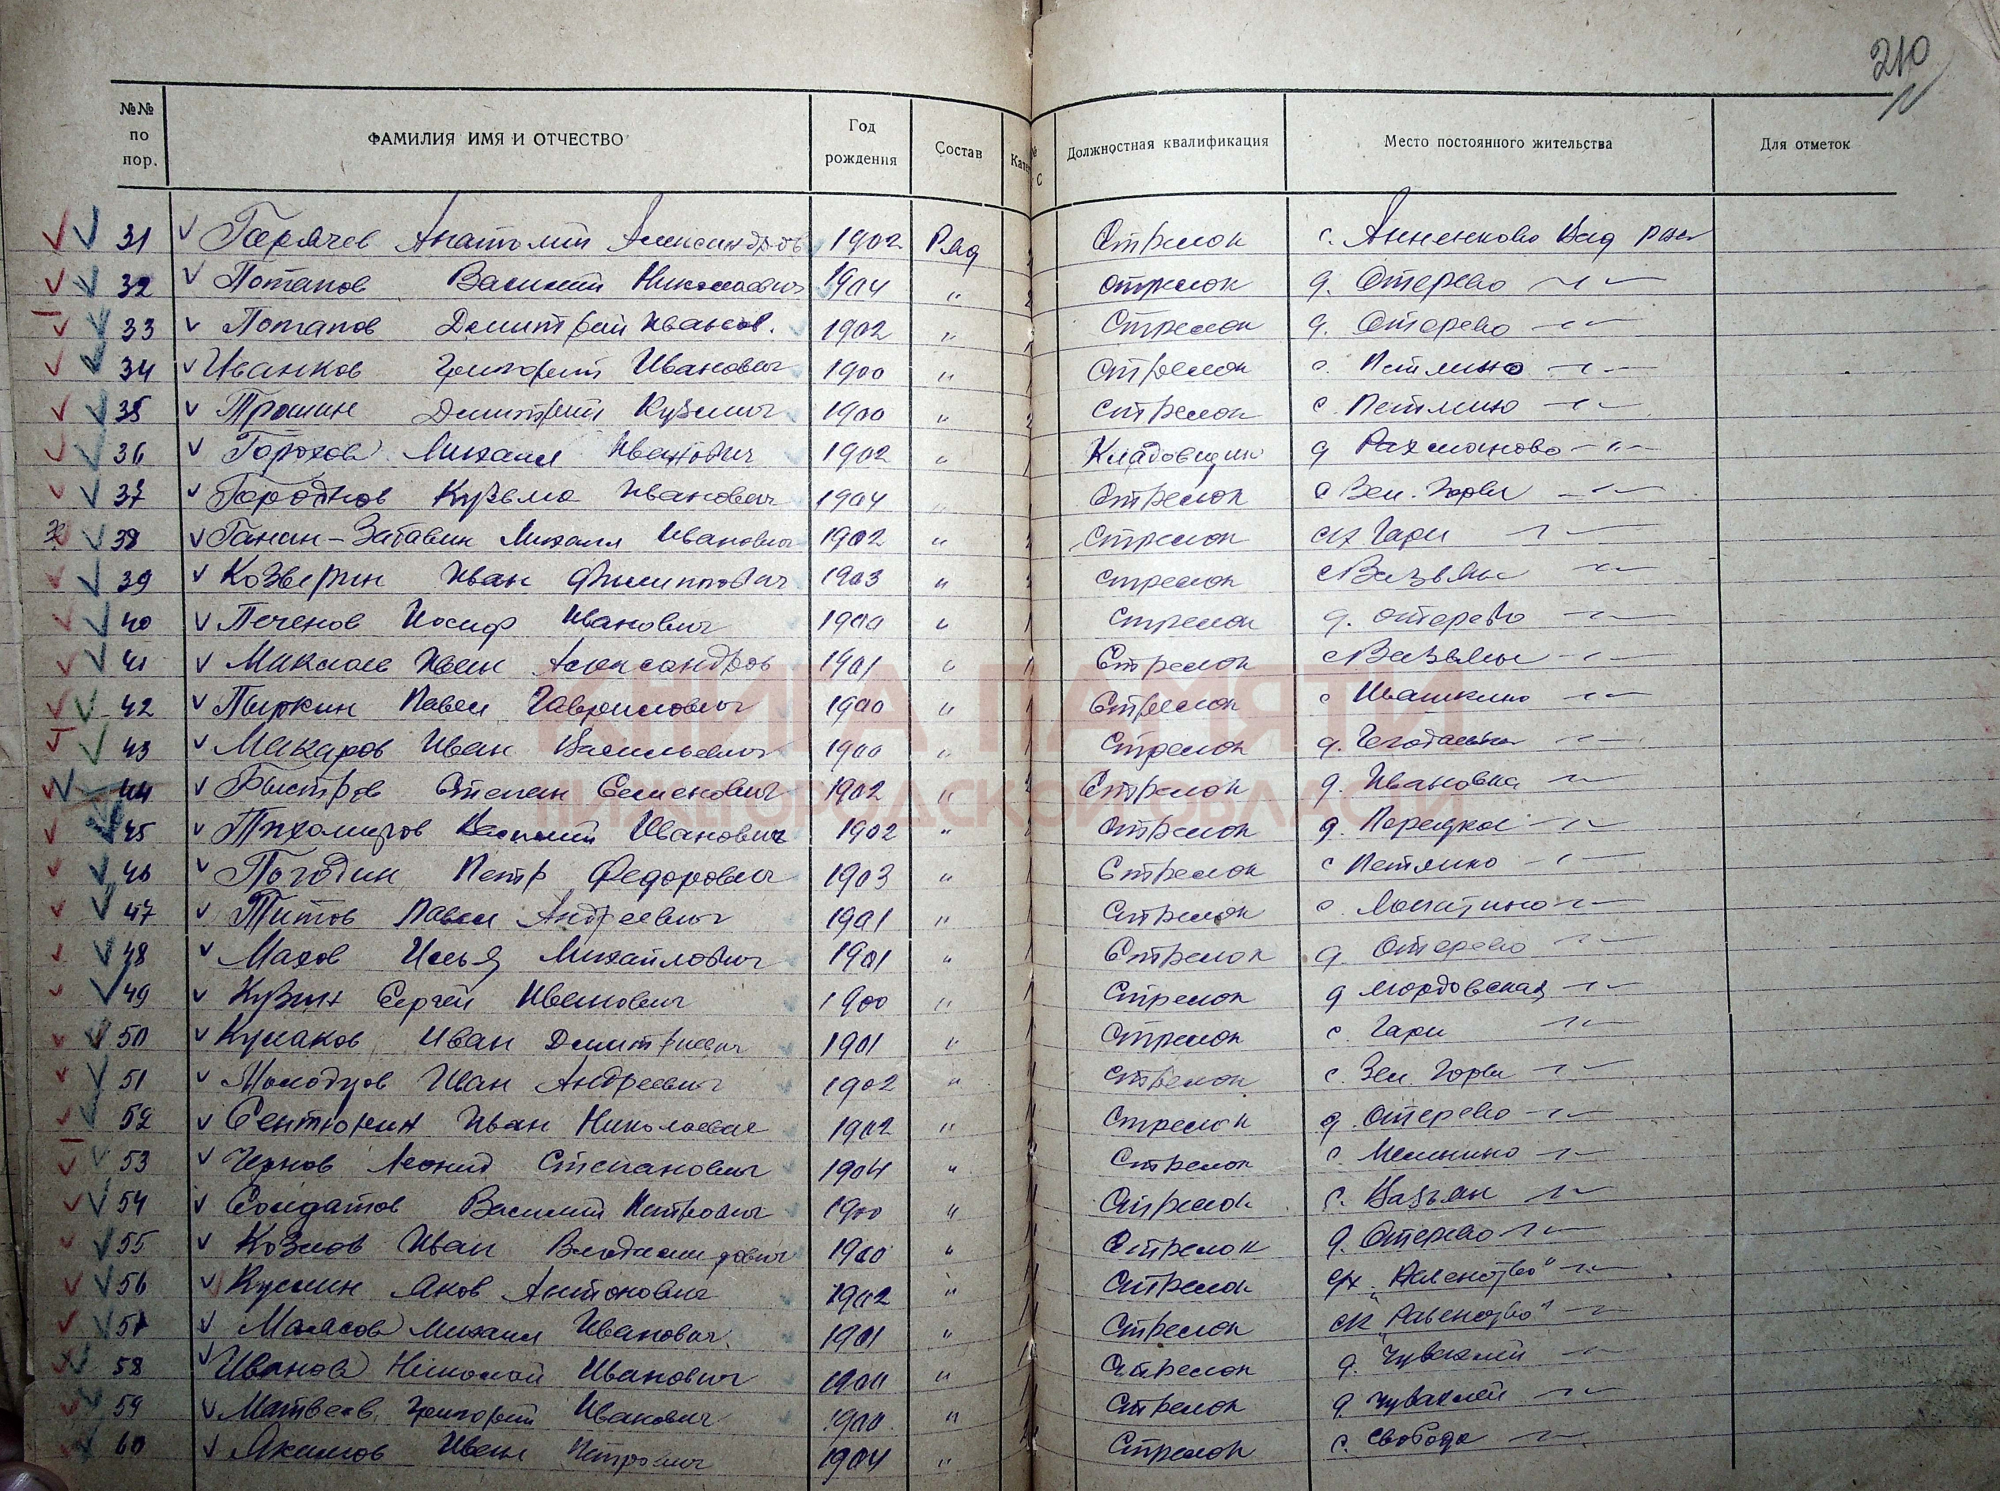 210
№№ по пор. ФАМИЛИЯ ИМЯ И ОТЧЕСТВО Год рождения Состав Должностная квалификация Место постоянного жительства Для отметок
31 Горячев Анатолий Александров 1902 Ряд Стрелок с. Анненково Вад рай
32 Потапов Василий Николаевич 1904 " стрелок д. Отерево —"—
33 Потапов Дмитрий Иванов. 1902 " Стрелок д. Отерево —"—
34 Иванков Григорий Иванович 1900 " Стрелок с. Петлино —"—
35 Трошин Дмитрий Кузьмич 1900 " стрелок с. Петлино —"—
36 Горохов Михаил Иванович 1902 " Кладовщик д Рахманово —"—
37 Городнов Кузьма Иванович 1904 Стрелок с Зел. Горы —"—
38 Ганан-Забавин Михаил Иванович 1902 " Стрелок Гари —"—
39 Козверин Иван Филиппович 1903 " стрелок
40 Печенов Иосиф Иванович 1900 " Стрелок д. Отерево —"—
41 Иван Александров 1901 " Стрелок
42 Пиркин Павел Гаврилович 1900 " Стрелок с Ивашкино —"—
43 Макаров Иван Васильевич 1900 " Стрелок д.
44 Быстров Степан Семенович 1902 " Стрелок д. Ивановка —"—
45 Тихомиров Василий Иванович 1902 " Стрелок д.
46 Погодин Петр Федорович 1903 " Стрелок с Петлино —"—
47 Титов Павел Андреевич 1901 " Стрелок с. Лопатино —"—
48 Махов Илья Михайлович 1901 " Стрелок д. Отерево —"—
49 Кузин Сергей Иванович 1900 " Стрелок д Мордовская —"—
50 Кулаков Иван Дмитриевич 1901 " Стрелок с. Гари —"—
51 Молодцов Иван Андреевич 1902 " стрелок с. Зел. Горы —"—
52 Сентюрин Иван Николаевич 1902 " Стрелок д. Отерево —"—
53 Чернов Леонид Степанович 1904 " Стрелок с.
54 Солдатов Василий Петрович 1900 " Стрелок с.
55 Козлов Иван Владимирович 1900 " Стрелок д. Отерево —"—
56 Яков Антонович 1902 " Стрелок "Равенство" —"—
57 Михаил Иванович 1901 " Стрелок "Равенство" —"—
58 Иванов Николай Иванович 1900 " Стрелок д. Чувахлей —"—
59 Матвеев Григорий Иванович 1900 " Стрелок д. Чувахлей —"—
60 Якимов Иван Петрович 1904 " Стрелок с. Свобода —"—
КНИГА ПАМЯТИ
НИЖЕГОРОДСКОЙ ОБЛАСТИ